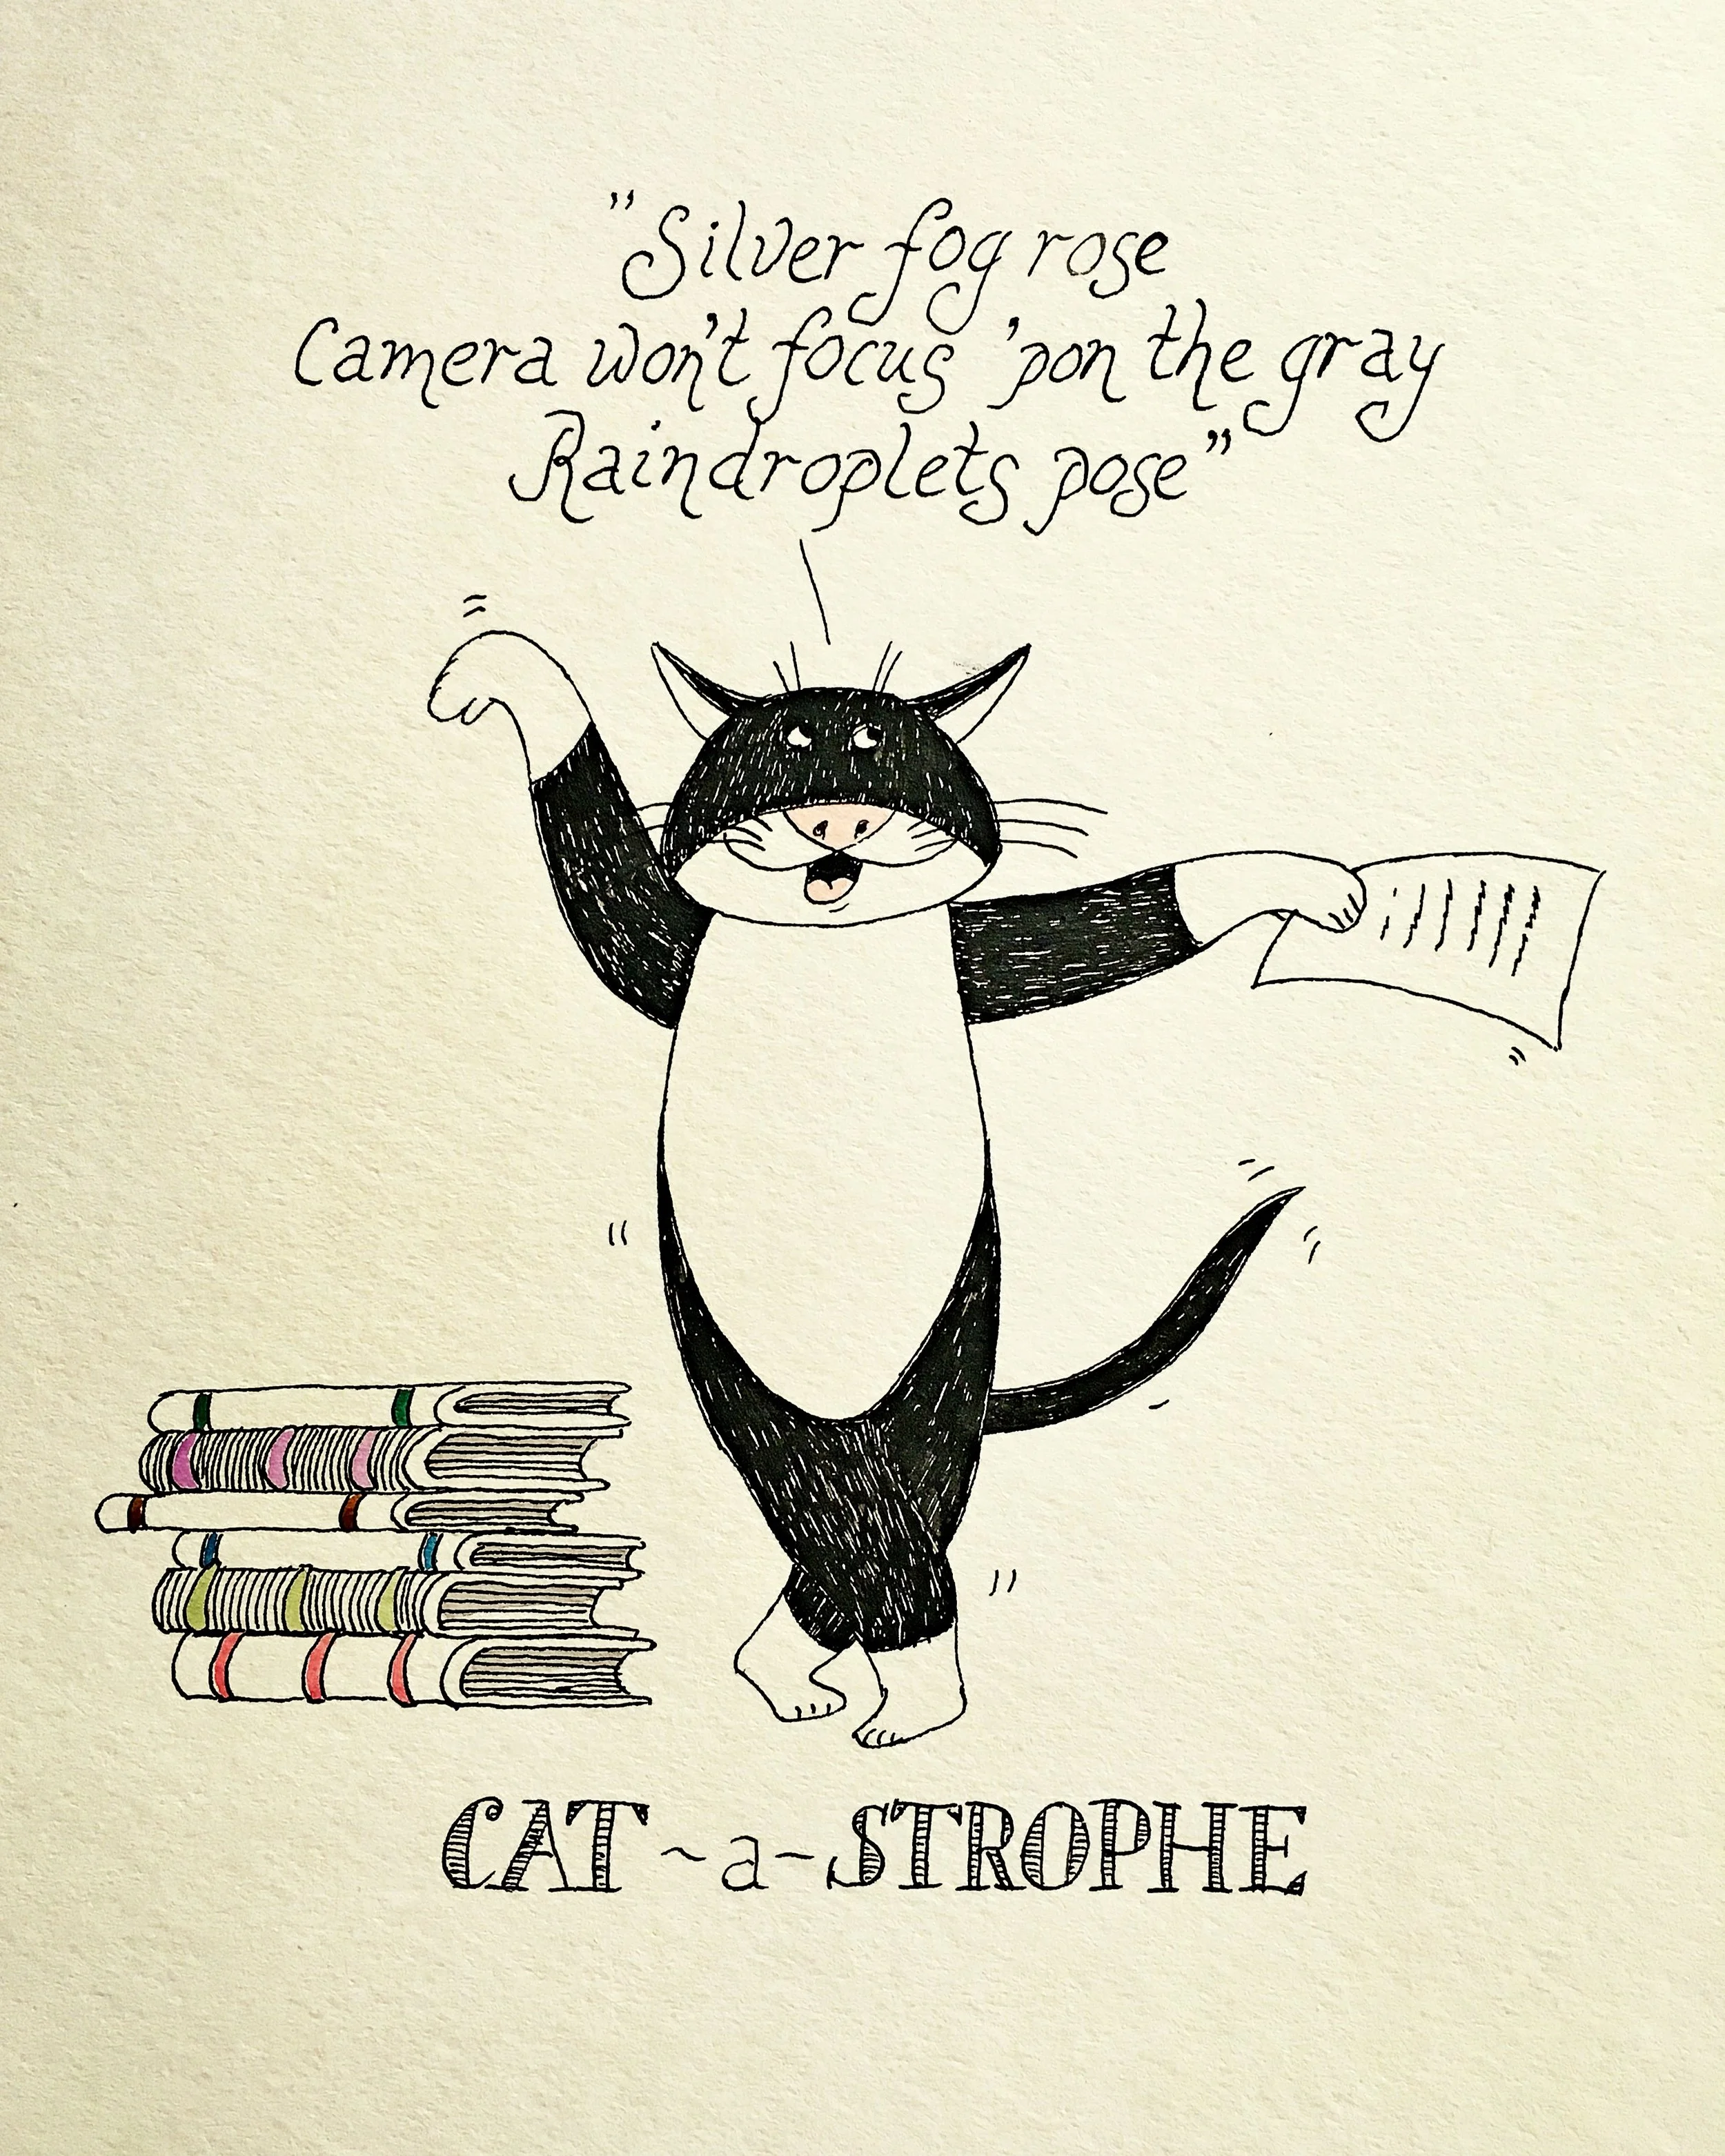 "Silver fog rose
Camera won't focus 'pon the gray
Raindroplets pose"
CAT~a~STROPHE